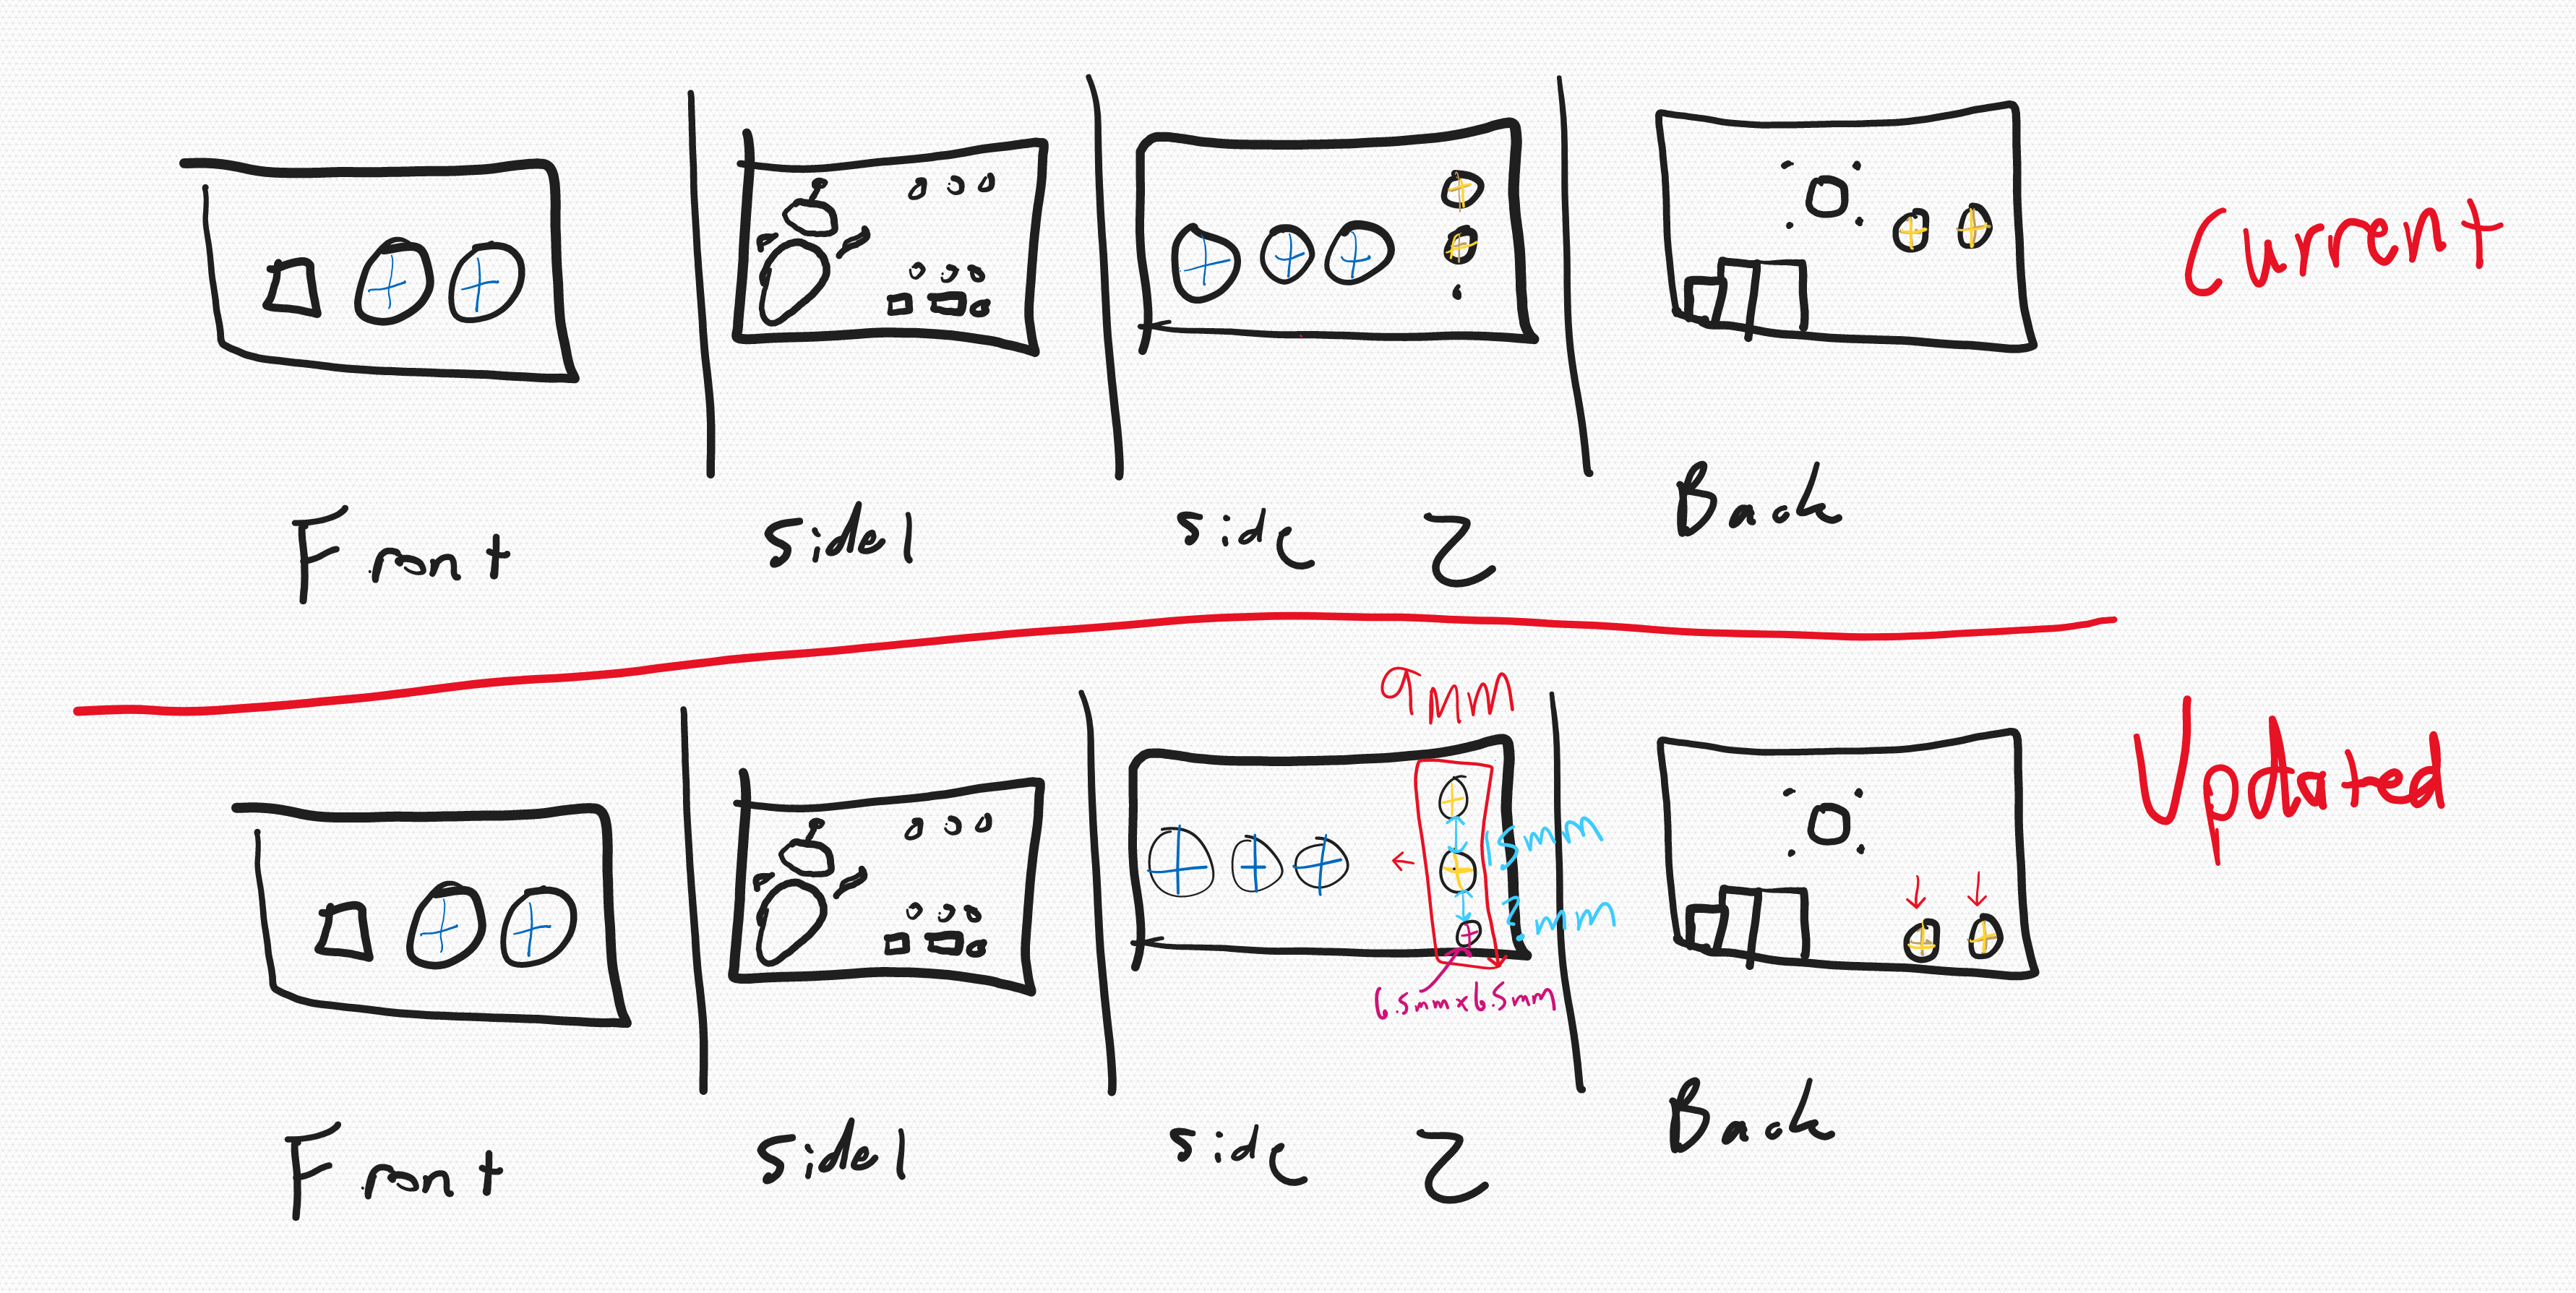 Current
Front
Side 1
Side 2
Back
9mm
Updated
15mm
2mm
6.5mm x 6.5mm
Front
Side 1
Side 2
Back